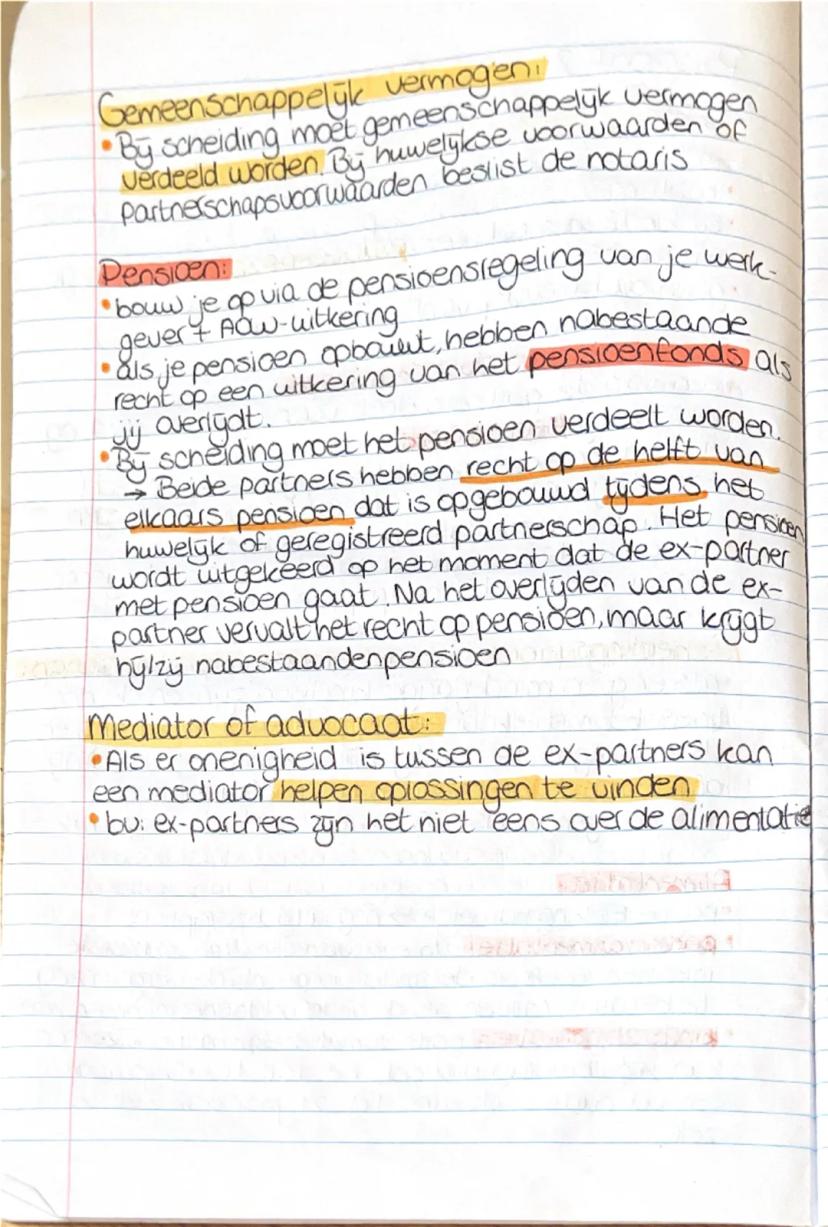 Gemeenschappelijk vermogen:
• Bij scheiding moet gemeenschappelijk vermogen
verdeeld worden. Bij huwelijkse voorwaarden of
partnerschapsvoorwaarden beslist de notaris
Pensioen:
• bouw je op via de pensioensregeling van je werk-
gever + AOW-uitkering
• als je pensioen opbouwt, hebben nabestaande
recht op een uitkering van het pensioenfonds als
jij overlijdt.
• Bij scheiding moet het pensioen verdeelt worden.
→ Beide partners hebben recht op de helft van
elkaars pensioen dat is opgebouwd tijdens het
huwelijk of geregistreerd partnerschap. Het pensioen
wordt uitgekeerd op het moment dat de ex-partner
met pensioen gaat. Na het overlijden van de ex-
partner vervalt het recht op pensioen, maar krijgt
hij/zij nabestaandenpensioen
Mediator of advocaat:
• Als er onenigheid is tussen de ex-partners kan
een mediator helpen oplossingen te vinden
• bv: ex-partners zijn het niet eens over de alimentatie